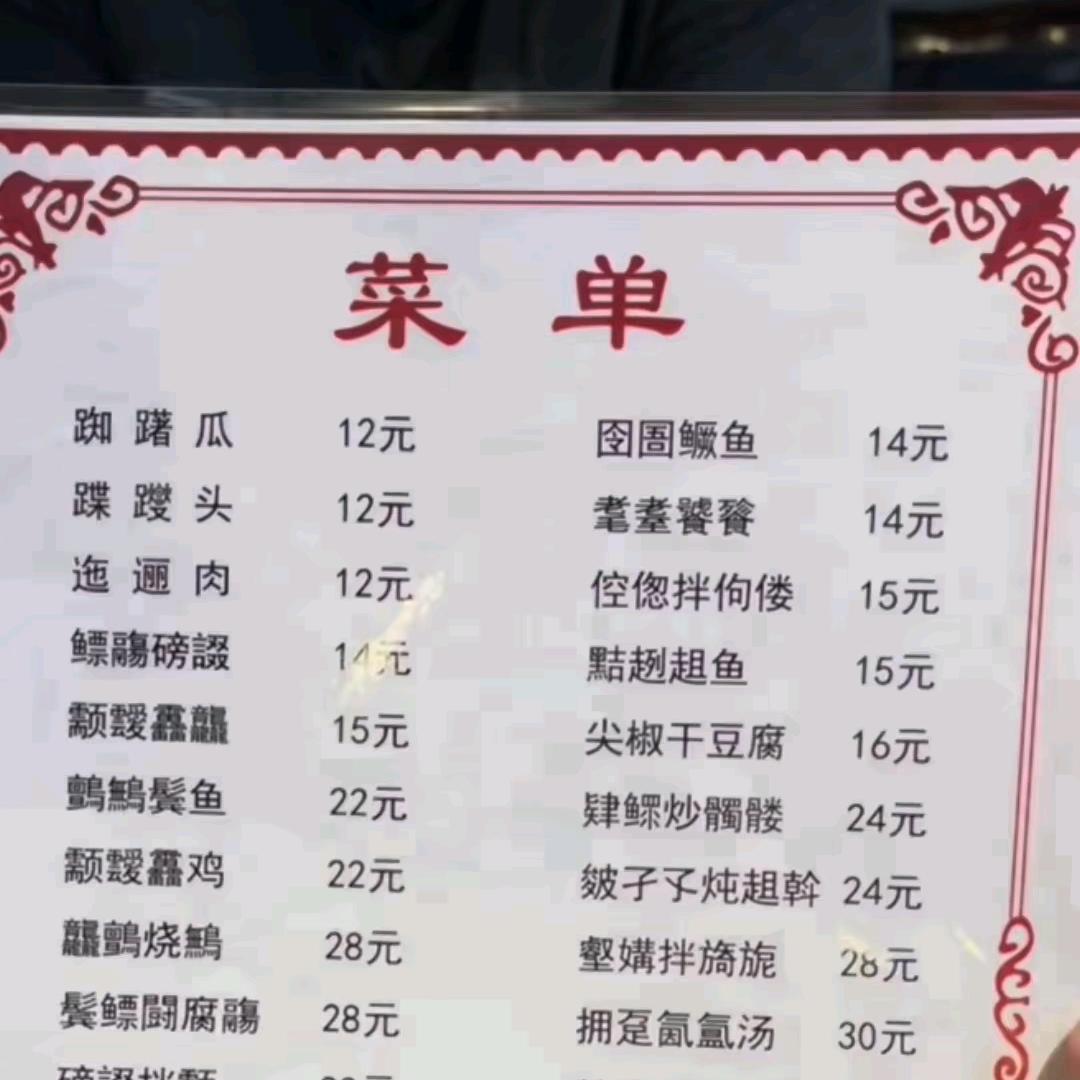 菜单
踟躇瓜 12元
蹀躞头 12元
迤逦肉 12元
鳔鬺磅諁 14元
顠靉靐龘 15元
鸇鷡鬓鱼 22元
顠靉靐鸡 22元
龘鸇烧鷡 28元
鬓鳔闘腐鬺 28元
囹圄鳜鱼 14元
耄耋饕餮 14元
倥偬拌佝偻 15元
黠趔趄鱼 15元
尖椒干豆腐 16元
肄鳏炒髑髅 24元
皴孑孓炖趄斡 24元
壑媾拌旖旎 28元
拥趸氤氲汤 30元